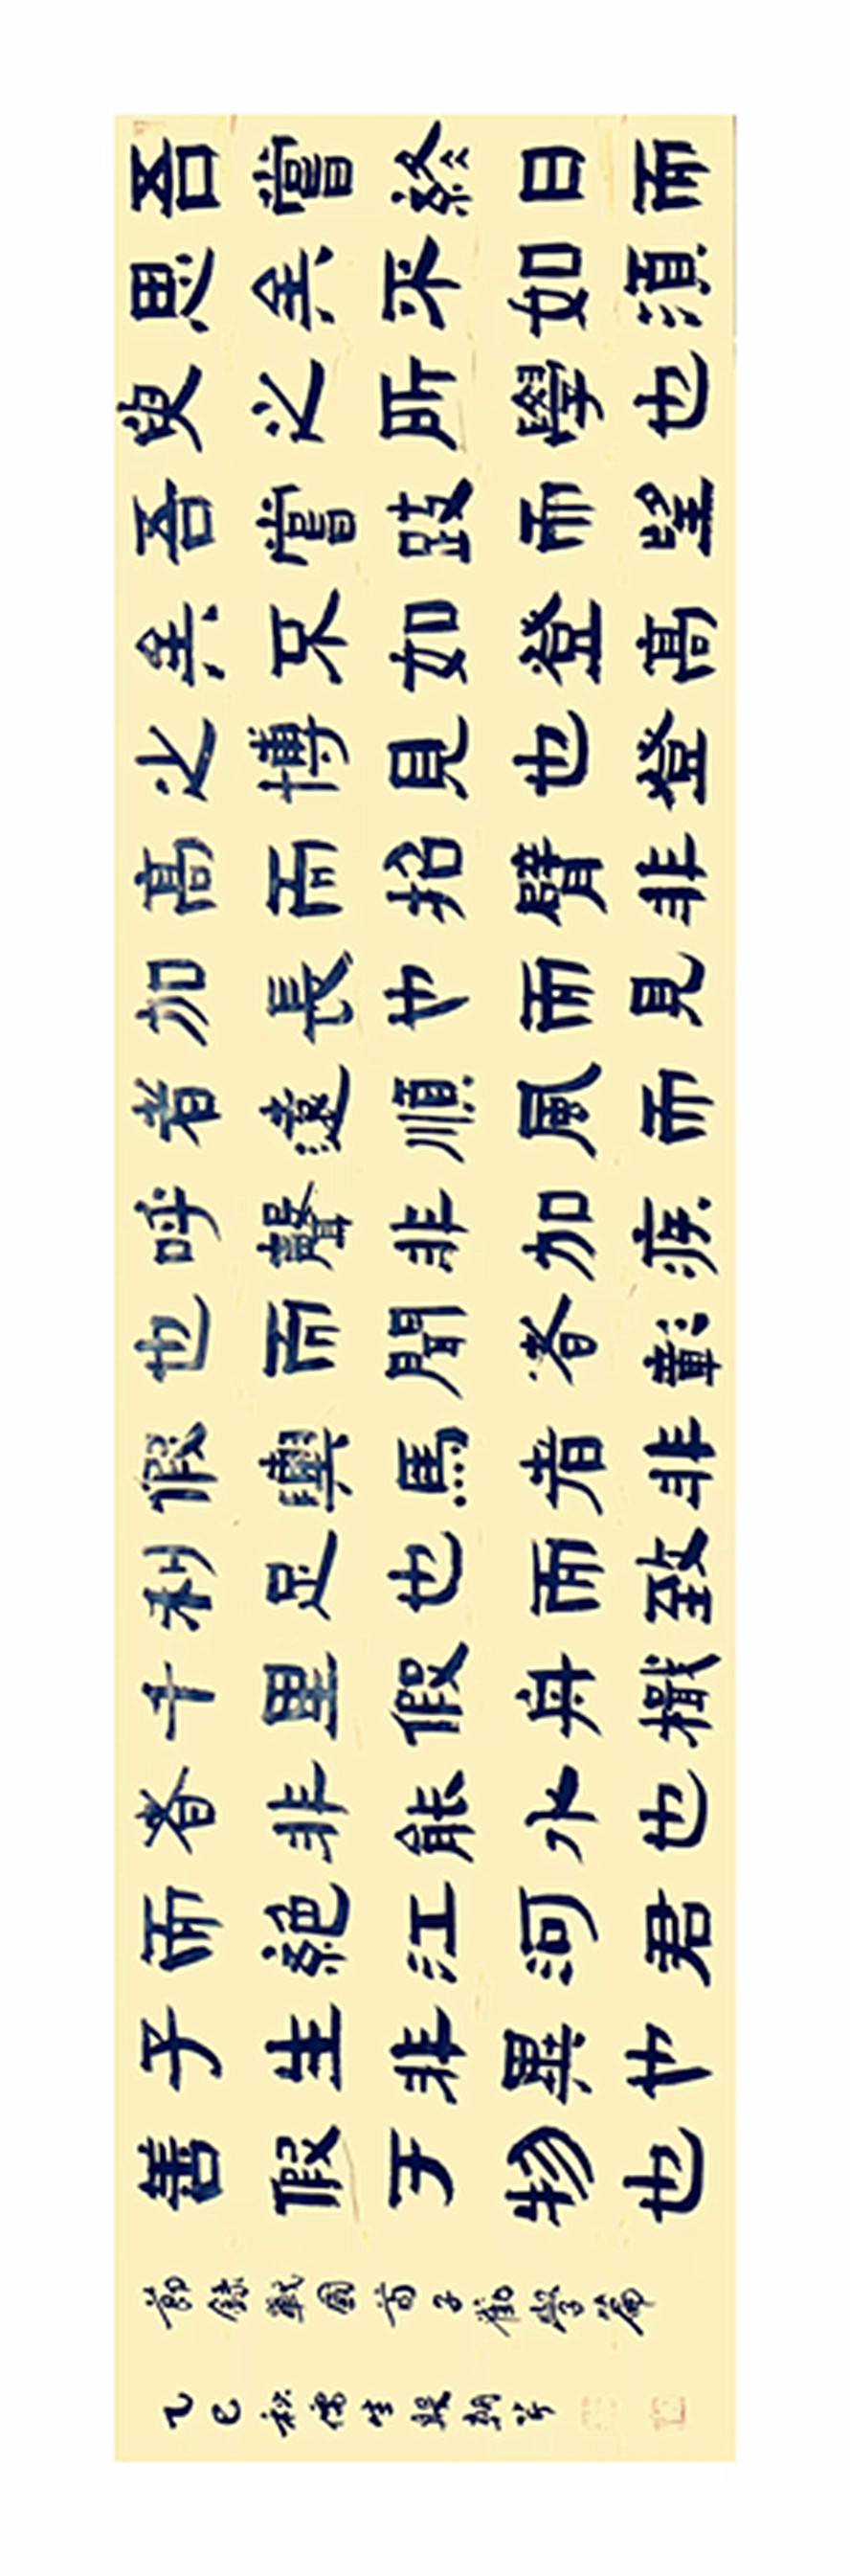 吾嘗終日而
思矣不如須
臾之所學也
吾嘗跂而望
矣不如登高
之博見也登
高而招臂非
加長也而見
者遠順風而
呼聲非加疾
也而聞者彰
假輿馬者非
利足也而致
千里假舟楫
者非能水也
而絕江河君
子生非異也
善假于物也
節錄戰國荀子勸學篇
乙巳秋儒生殷朝